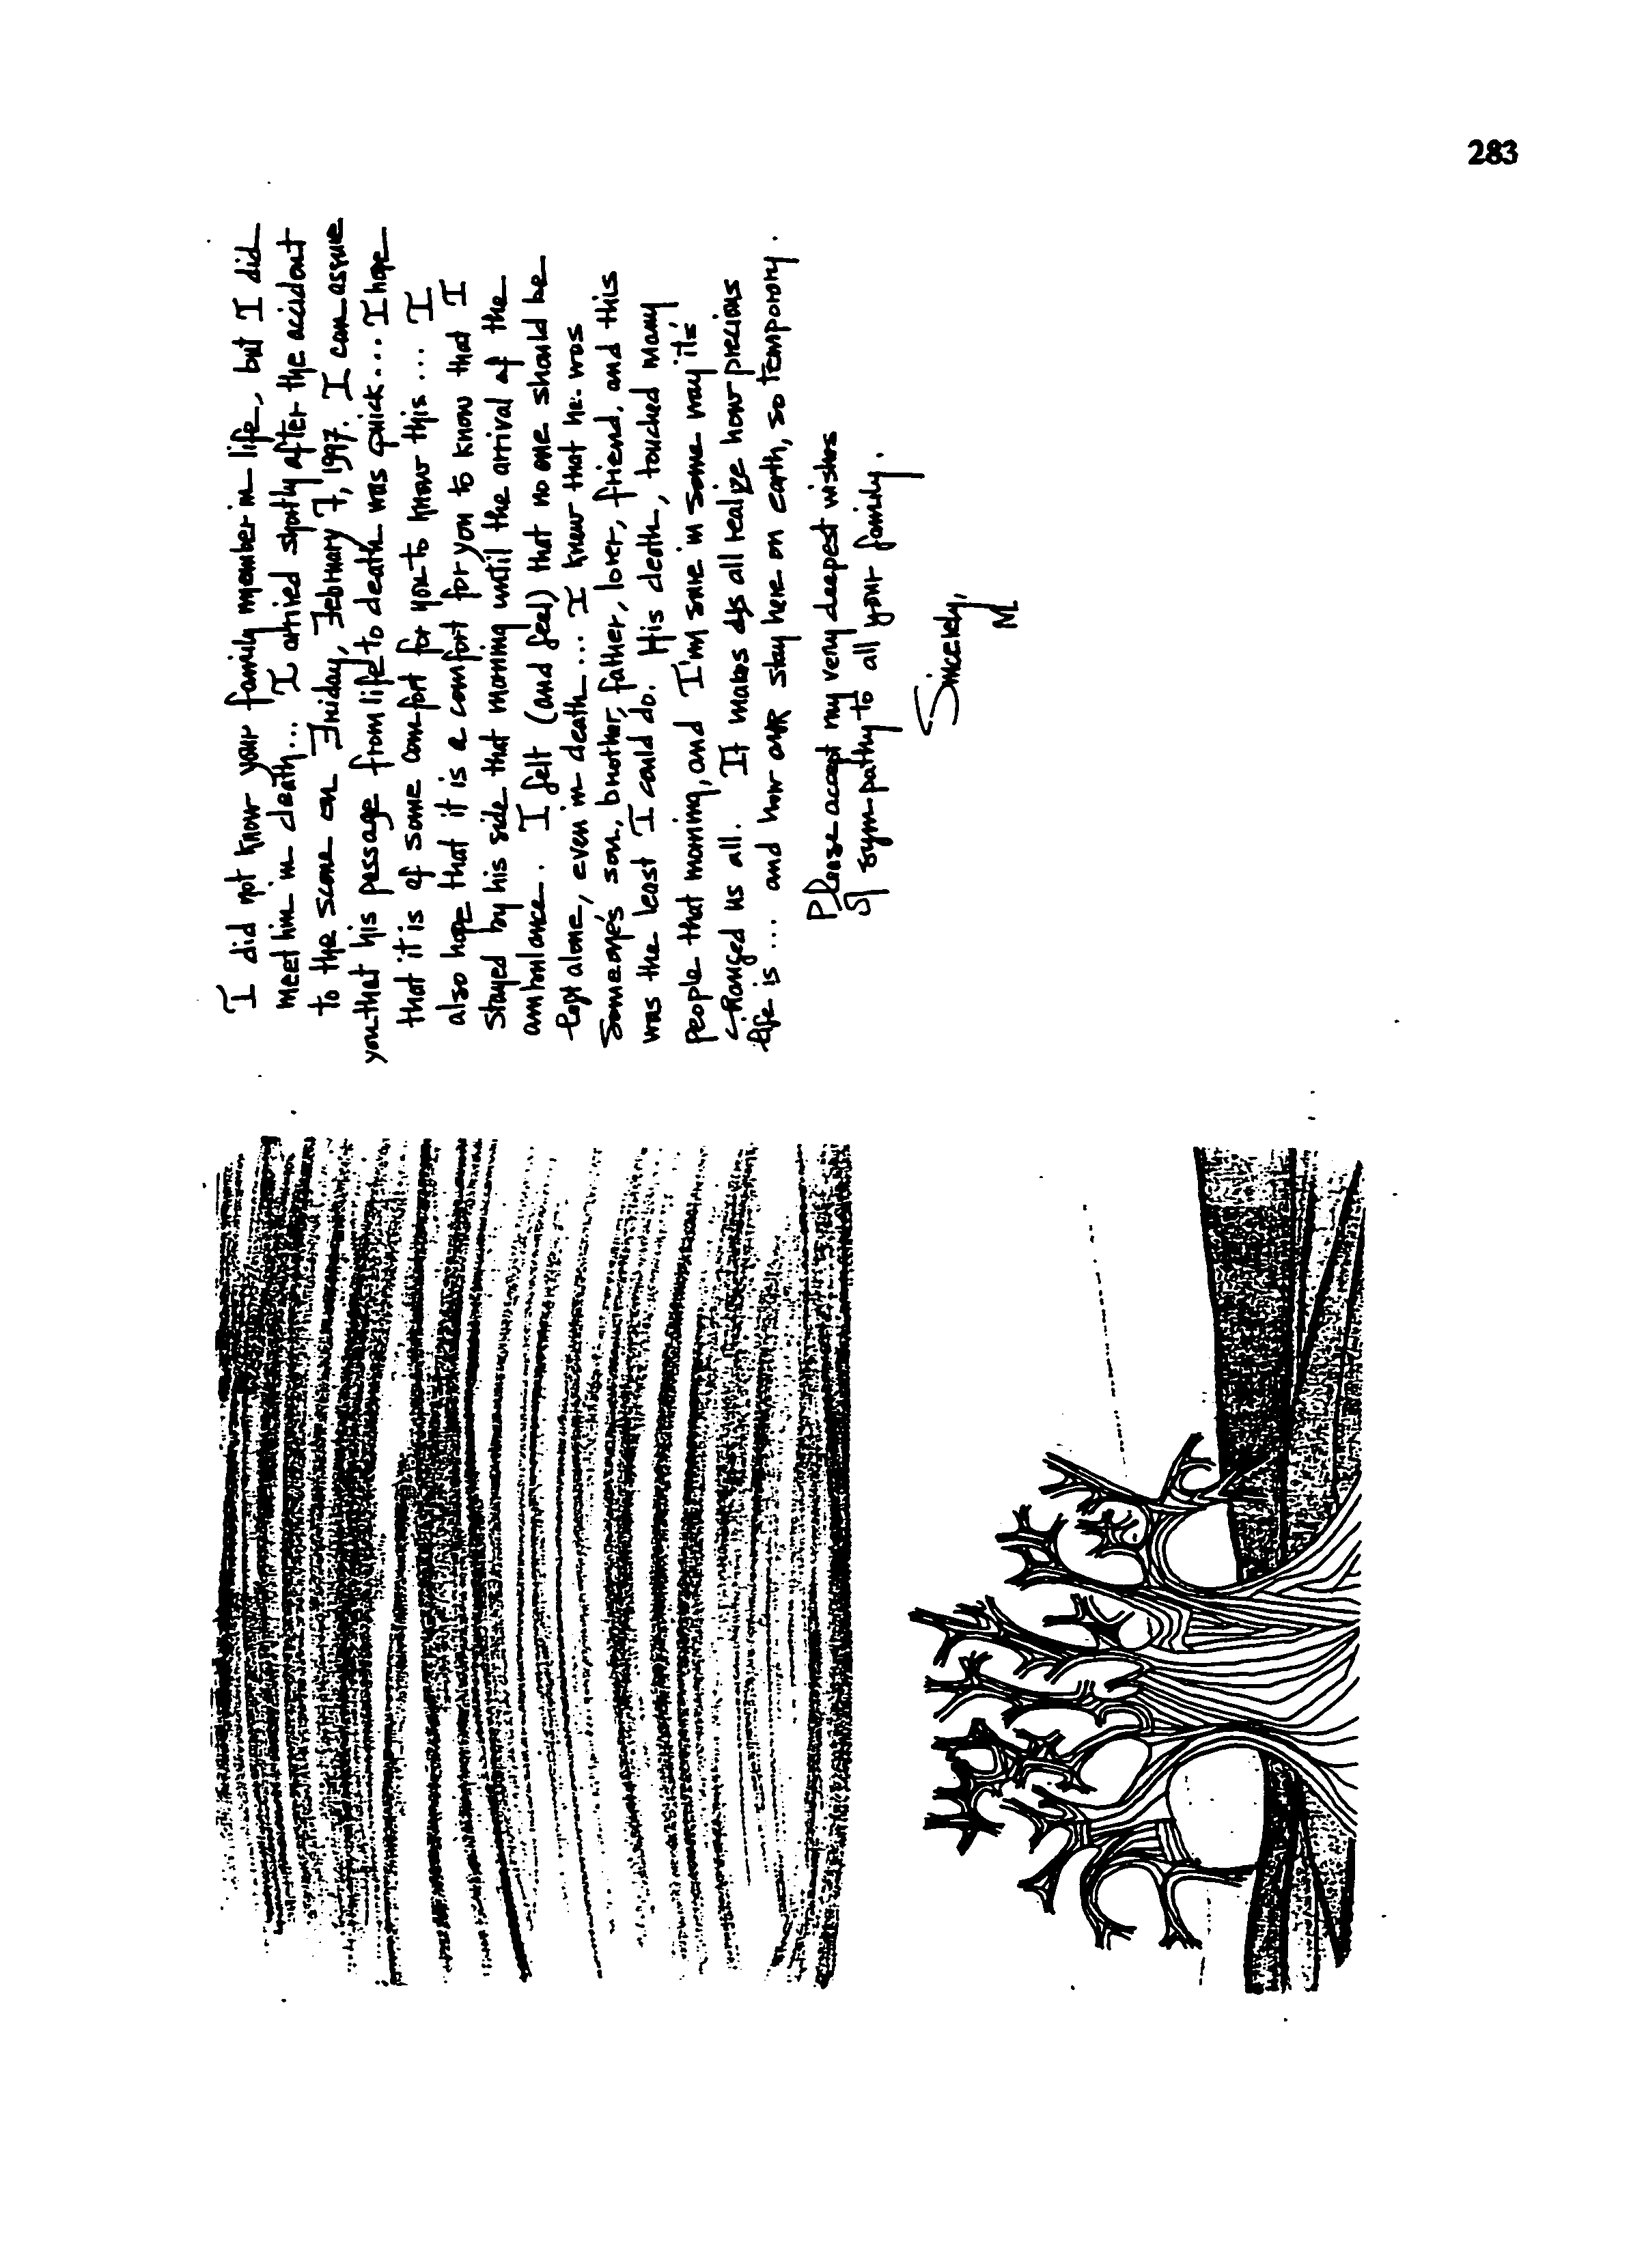 283
I did not know your family member in life, but I did
meet him in death... I arrived shortly after the accident
to the scene on Friday, February 7, 1997. I can assure
you that his passage from life to death was quick.... I hope
that it is of some comfort for you to know this... I
also hope that it is a comfort for you to know that I
stayed by his side that morning until the arrival of the
ambulance. I felt (and feel) that no one should be
left alone, even in death... I knew that he was
someone's son, brother, father, lover, friend, and this
was the least I could do. His death, touched many
people that morning, and I'm sure in some way it's
changed us all. It makes us all realize how precious
life is... and how our stay here on earth, so temporary.
Please accept my very deepest wishes
of sympathy to all your family.
Sincerely,
M